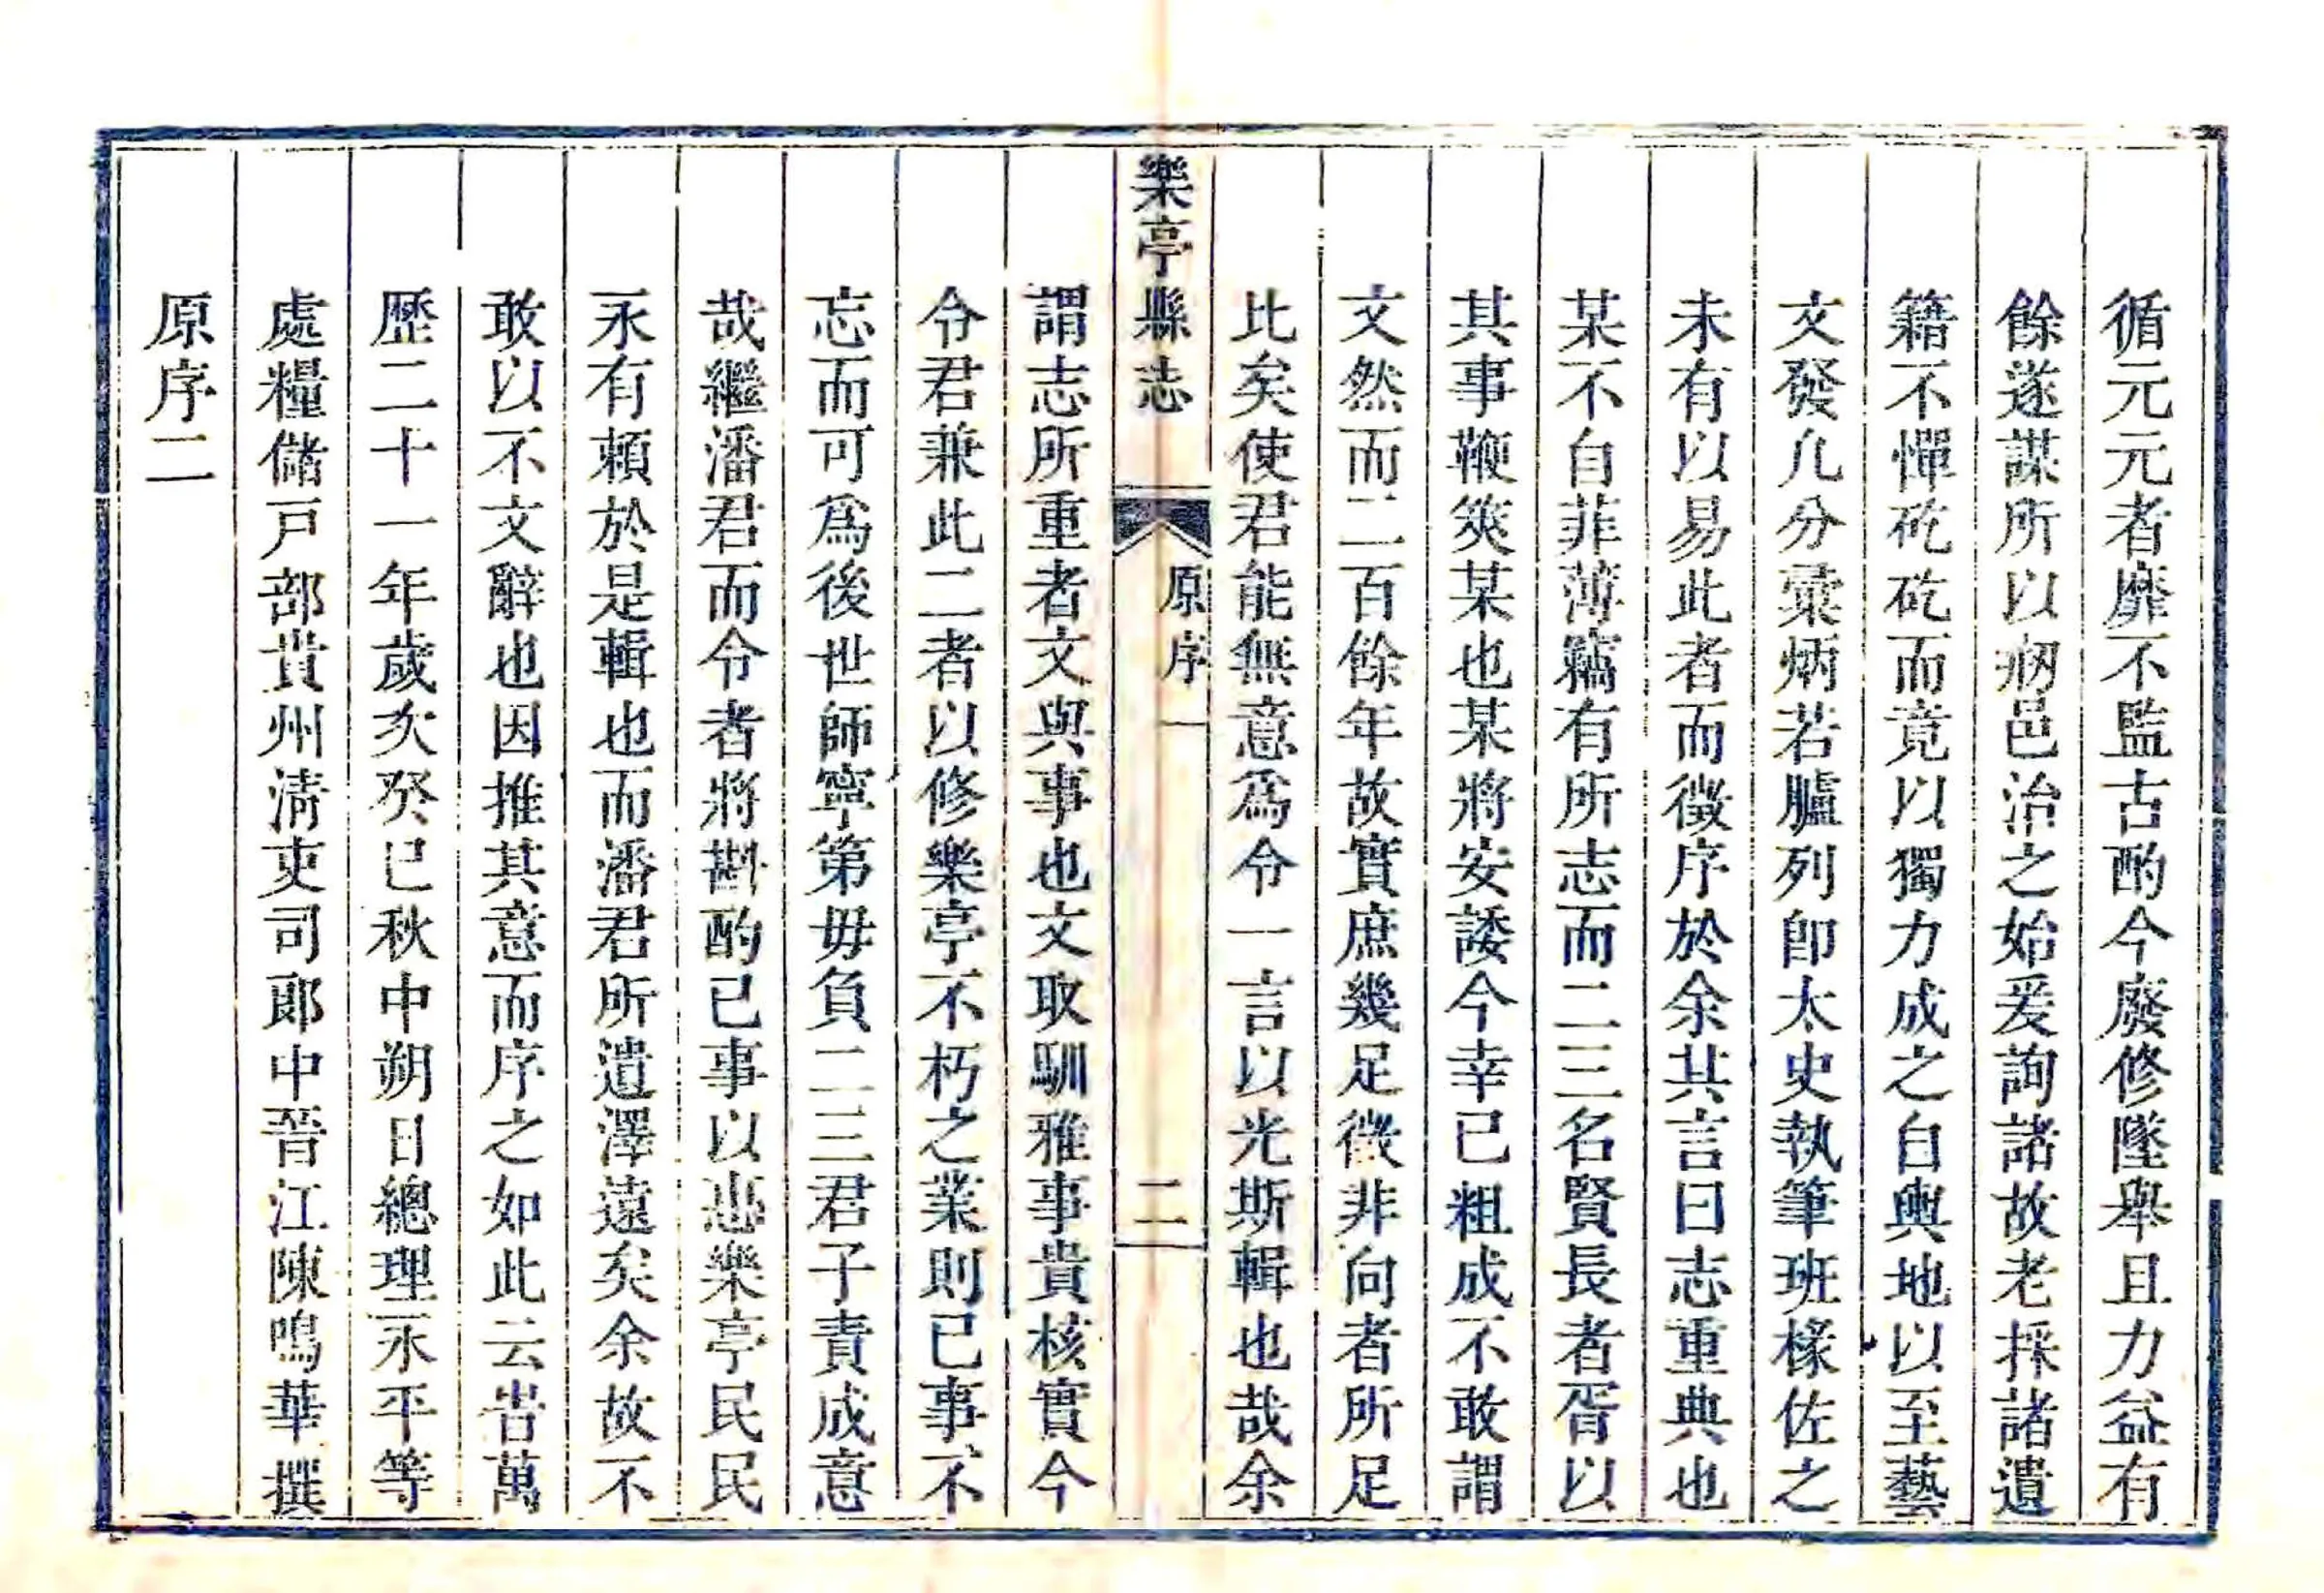 循元元者靡不監古酌今廢修墜舉且力益有
餘遂謀所以剏邑治之始爰詢諸故老採諸遺
籍不憚矻矻而竟以獨力成之自輿地以至藝
文發凡分彙炳若臚列卽太史執筆班椽佐之
未有以易此者而徵序於余其言曰志重典也
某不自菲薄竊有所志而二三名賢長者胥以
其事鞭筴某也某將安諉今幸已粗成不敢謂
文然而二百餘年故實庶幾足徵非向者所足
比矣使君能無意爲令一言以光斯輯也哉余
樂亭縣志
原序一
二
謂志所重者文與事也文取馴雅事貴核實今
令君兼此二者以修樂亭不朽之業則已事不
忘而可爲後世師寧第毋負二三君子責成意
哉繼潘君而令者將斟酌已事以惠樂亭民民
永有賴於是輯也而潘君所遺澤遠矣余故不
敢以不文辭也因推其意而序之如此云旹萬
歷二十一年歲次癸巳秋中朔日總理永平等
處糧儲戸部貴州淸吏司郎中晉江陳鳴華撰
原序二